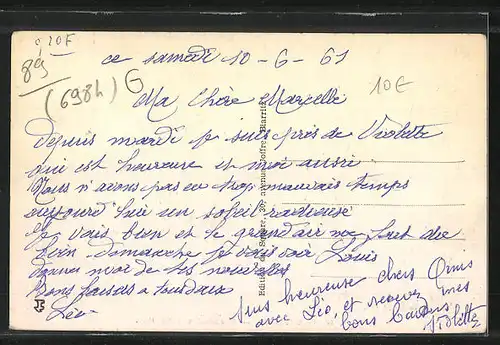 0,20F
89
(698h) G
10€
ce samedi 10-6-61
Ma Chère Marcelle
Depuis mardi je suis près de Violette
qui est heureuse et moi aussi
Nous n'avons pas eu trop mauvais temps
aujourd hui un soleil radieuse
Je vais bien et le grand air me fait du
bien. Demanche je vais voir Louis
donner moi de tes nouvelles
Bons baisers a tous deux
Léo
Suis heureuse chers Amis
avec Léo, et recevez mes
bons baisers
Violette
Editions du Square, 20, avenue Joffre, Biarritz